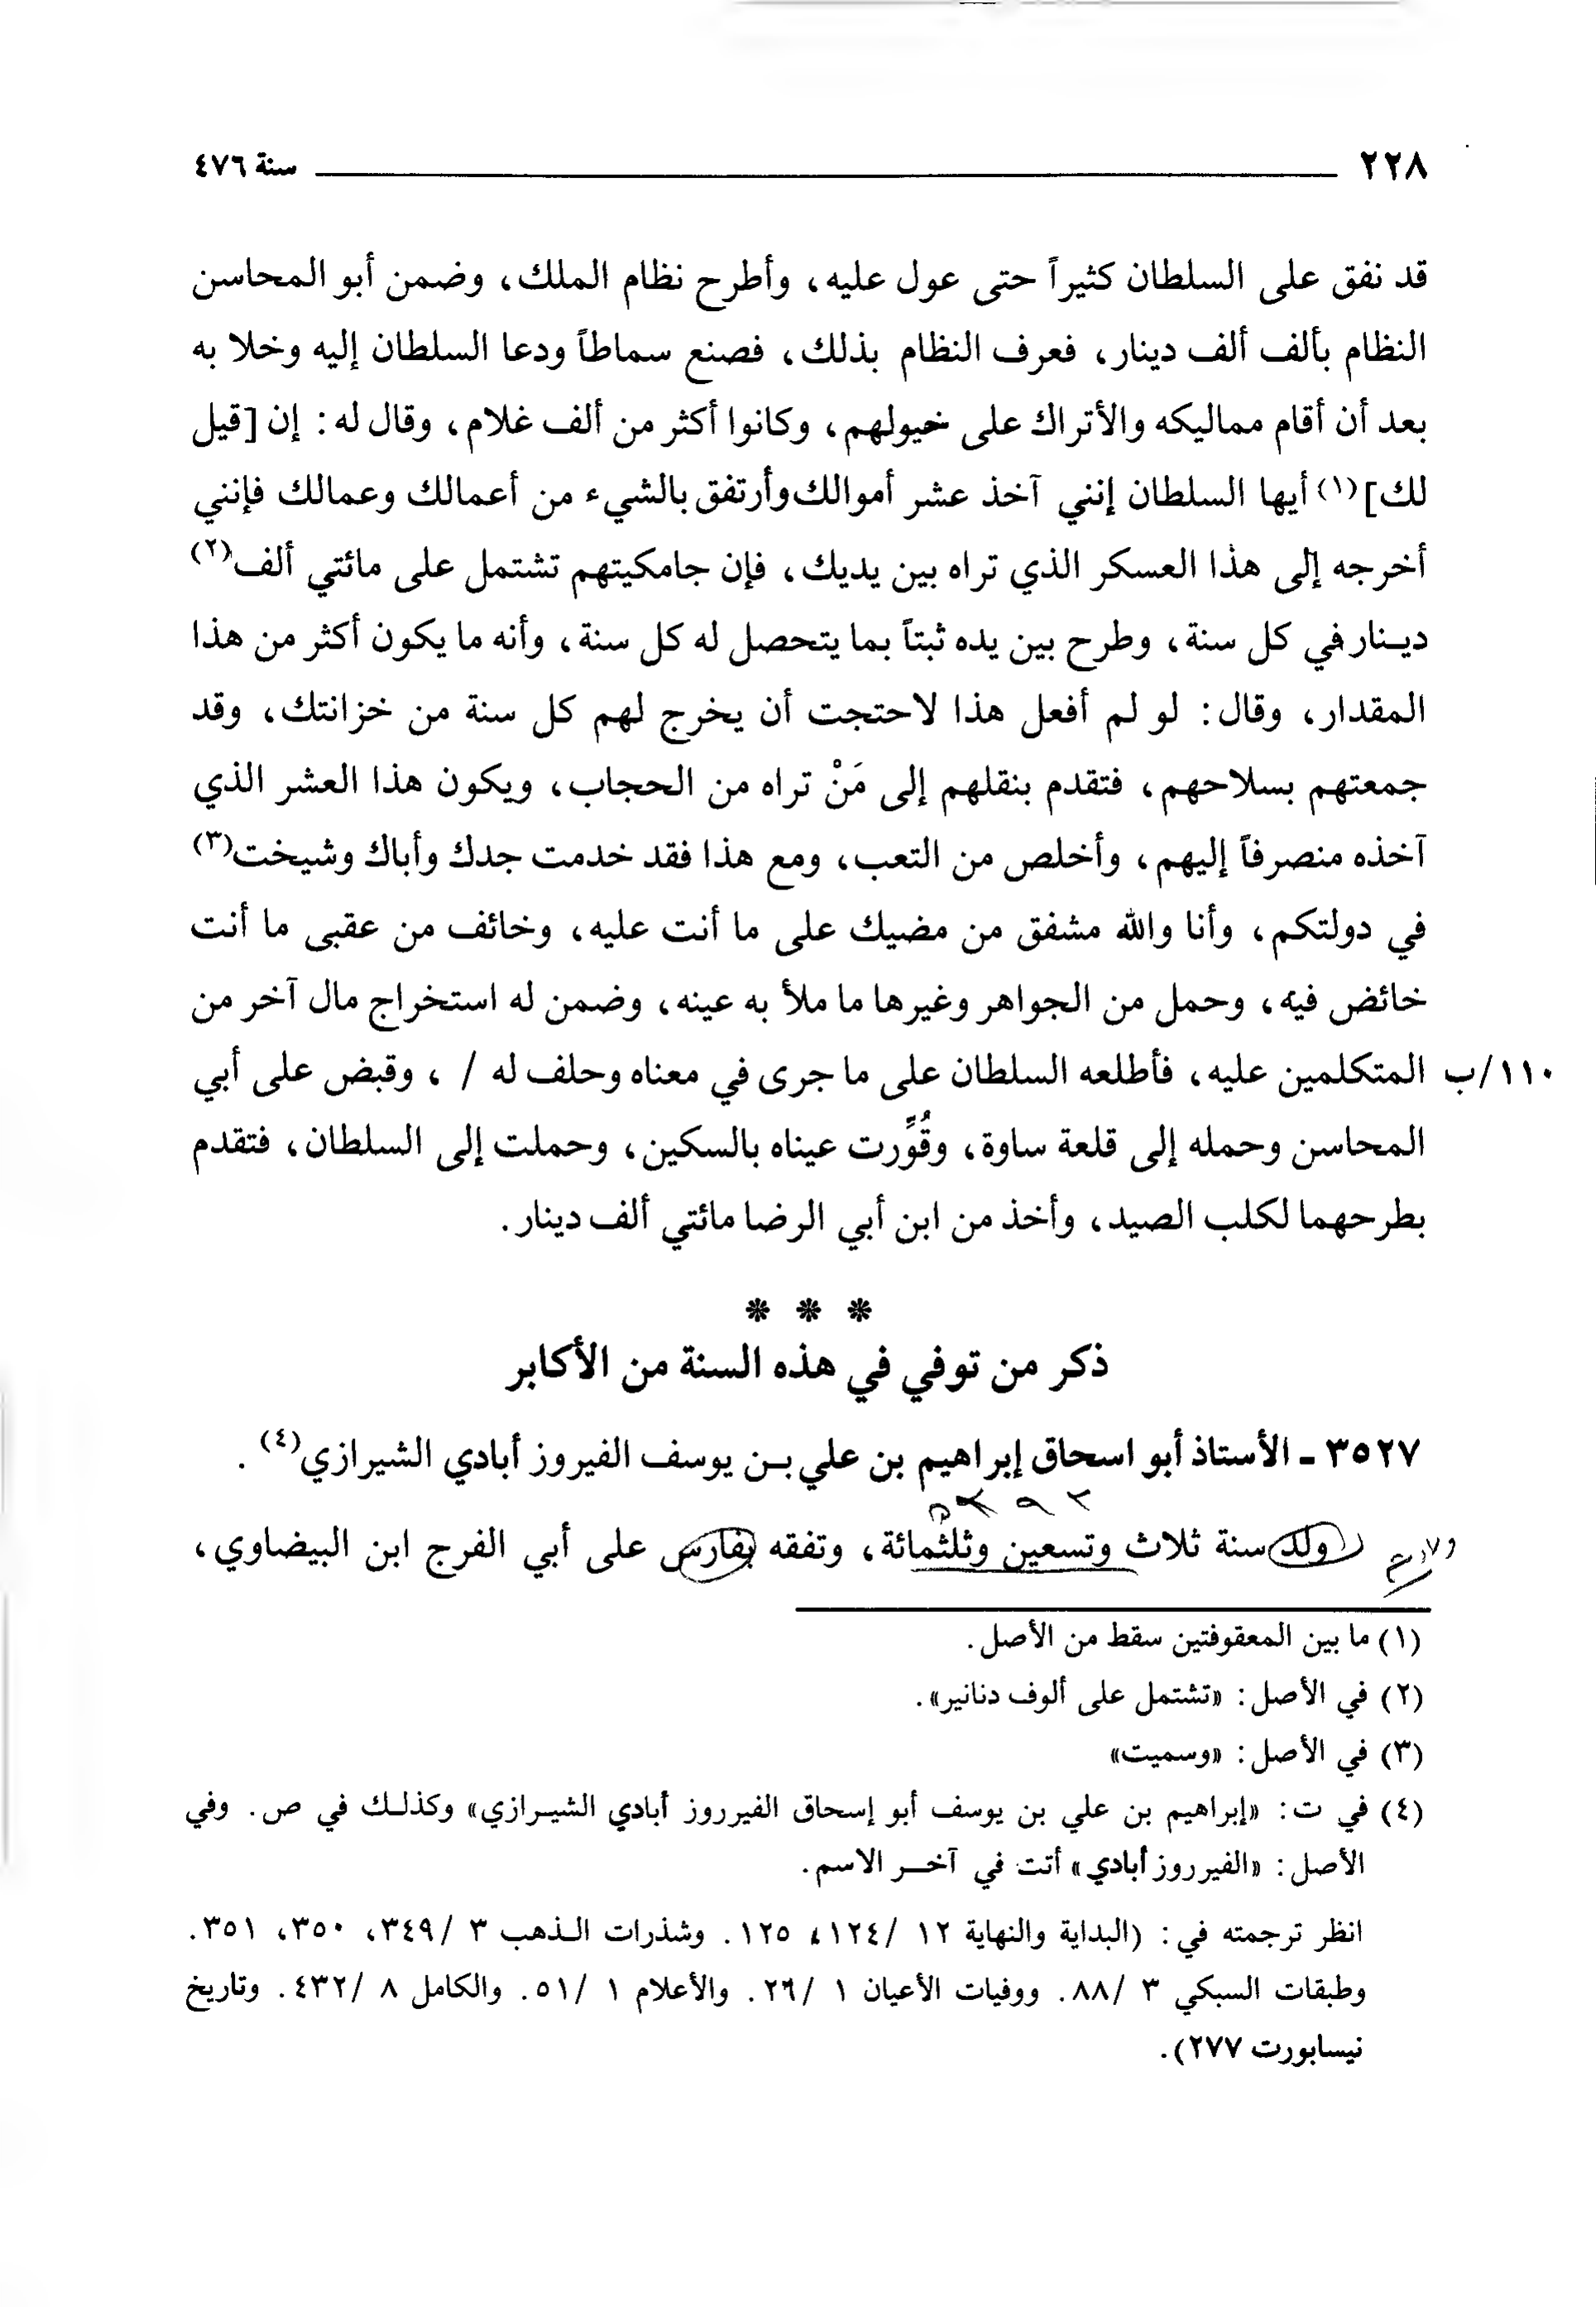 ٢٢٨ سنة ٤٧٦
قد نفق على السلطان كثيراً حتى عول عليه، وأطرح نظام الملك، وضمن أبو المحاسن
النظام بألف ألف دينار، فعرف النظام بذلك، فصنع سماطاً ودعا السلطان إليه وخلا به
بعد أن أقام مماليكه والأتراك على خيولهم، وكانوا أكثر من ألف غلام، وقال له: إن [قيل
لك](١) أيها السلطان إنني آخذ عشر أموالك وأرتفق بالشيء من أعمالك وعمالك فإنني
أخرجه إلى هذا العسكر الذي تراه بين يديك، فإن جامكيتهم تشتمل على مائتي ألف(٢)
دينار في كل سنة، وطرح بين يده ثبتاً بما يتحصل له كل سنة، وأنه ما يكون أكثر من هذا
المقدار، وقال: لو لم أفعل هذا لاحتجت أن يخرج لهم كل سنة من خزانتك، وقد
جمعتهم بسلاحهم، فتقدم بنقلهم إلى مَنْ تراه من الحجاب، ويكون هذا العشر الذي
آخذه منصرفاً إليهم، وأخلص من التعب، ومع هذا فقد خدمت جدك وأباك وشيخت(٣)
في دولتكم، وأنا والله مشفق من مضيك على ما أنت عليه، وخائف من عقبى ما أنت
خائض فيه، وحمل من الجواهر وغيرها ما ملأ به عينه، وضمن له استخراج مال آخر من
١١٠/ب المتكلمين عليه، فأطلعه السلطان على ما جرى في معناه وحلف له /، وقبض على أبي
المحاسن وحمله إلى قلعة ساوة، وقُوِّرت عيناه بالسكين، وحملت إلى السلطان، فتقدم
بطرحهما لكلب الصيد، وأخذ من ابن أبي الرضا مائتي ألف دينار.
* * *
ذكر من توفي في هذه السنة من الأكابر
٣٥٢٧ - الأستاذ أبو اسحاق إبراهيم بن علي بن يوسف الفيروز أبادي الشيرازي(٤).
ولد سنة ثلاث وتسعين وثلثمائة، وتفقه بفارس على أبي الفرج ابن البيضاوي،
(١) ما بين المعقوفتين سقط من الأصل.
(٢) في الأصل: «تشتمل على ألوف دنانير».
(٣) في الأصل: «وسميت»
(٤) في ت: «إبراهيم بن علي بن يوسف أبو إسحاق الفيرروز أبادي الشيرازي» وكذلك في ص. وفي
الأصل: «الفيرروز أبادي» أتت في آخر الاسم.
انظر ترجمته في: (البداية والنهاية ١٢ /١٢٤، ١٢٥. وشذرات الذهب ٣ /٣٤٩، ٣٥٠، ٣٥١.
وطبقات السبكي ٣ /٨٨. ووفيات الأعيان ١ /٢٦. والأعلام ١ /٥١. والكامل ٨ /٤٣٢. وتاريخ
نيسابورت ٢٧٧).